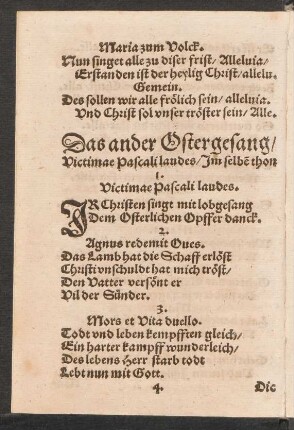 Maria zum Volck.
Nun singet alle zu diser frist/ Alleluia/
Erstanden ist der heylig Christ/ allelu.
Gemein.
Des sollen wir alle frölich sein/ alleluia.
Vnd Christ sol vnser tröster sein/ Alle.
Das ander Ostergesang/
Victimae Pascali laudes/ Im selbē thon
1.
Victimae Pascali laudes.
IR Christen singt mit lobgesang
Dem Osterlichen Opffer danck.
2.
Agnus redemit Oues.
Das Lamb hat die Schaff erlöst
Christi vnschuldt hat mich tröst/
Den Vatter versönt er
Vil der Sünder.
3.
Mors et Vita duello.
Todt vnd leben kempfften gleich/
Ein harter kampff wunderleich/
Des lebens Herr starb todt
Lebt nun mit Gott.
4. Dic